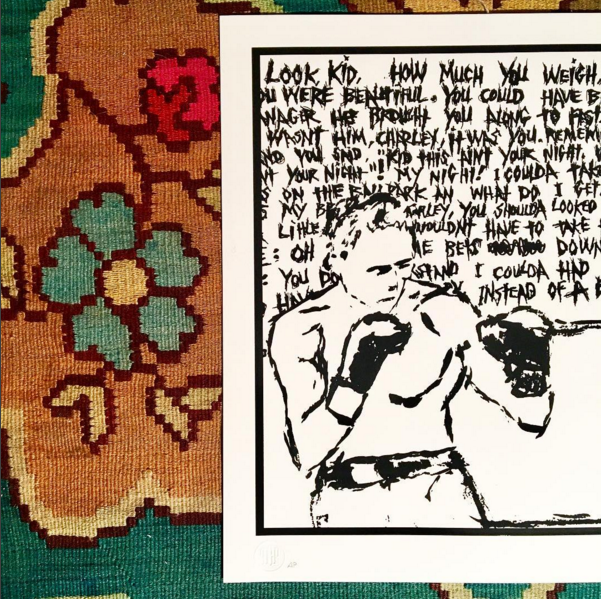 LOOK KID, HOW MUCH YOU WEIGH,
YOU WERE BEAUTIFUL. YOU COULD HAVE B
NAGER HE BROUGHT YOU ALONG TO FAST.
WASNT HIM, CHARLEY, IT WAS YOU. REMEM
ND YOU SAID "KID THIS AINT YOUR NIGHT.
T YOUR NIGHT"! MY NIGHT! I COULDA TAKE
ON THE BALLPARK AN WHAT DO I GET
MY B ARLEY, YOU SHOULDA LOOKED
LITTLE WOULDNT HAVE TO TAKE
: OH ME BETS DOWN
YOU DO STAND I COULDA HAD
HAV INSTEAD OF A B